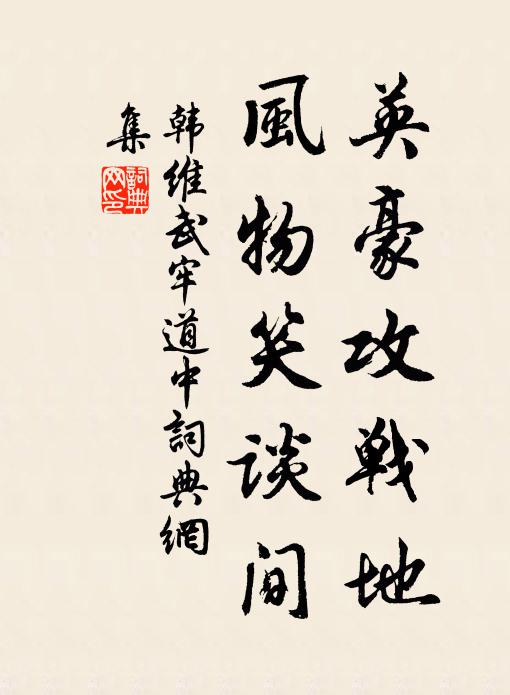 英豪攻戰地
風物笑談间
韩維武牢道中詞典網
集
詞典
网印